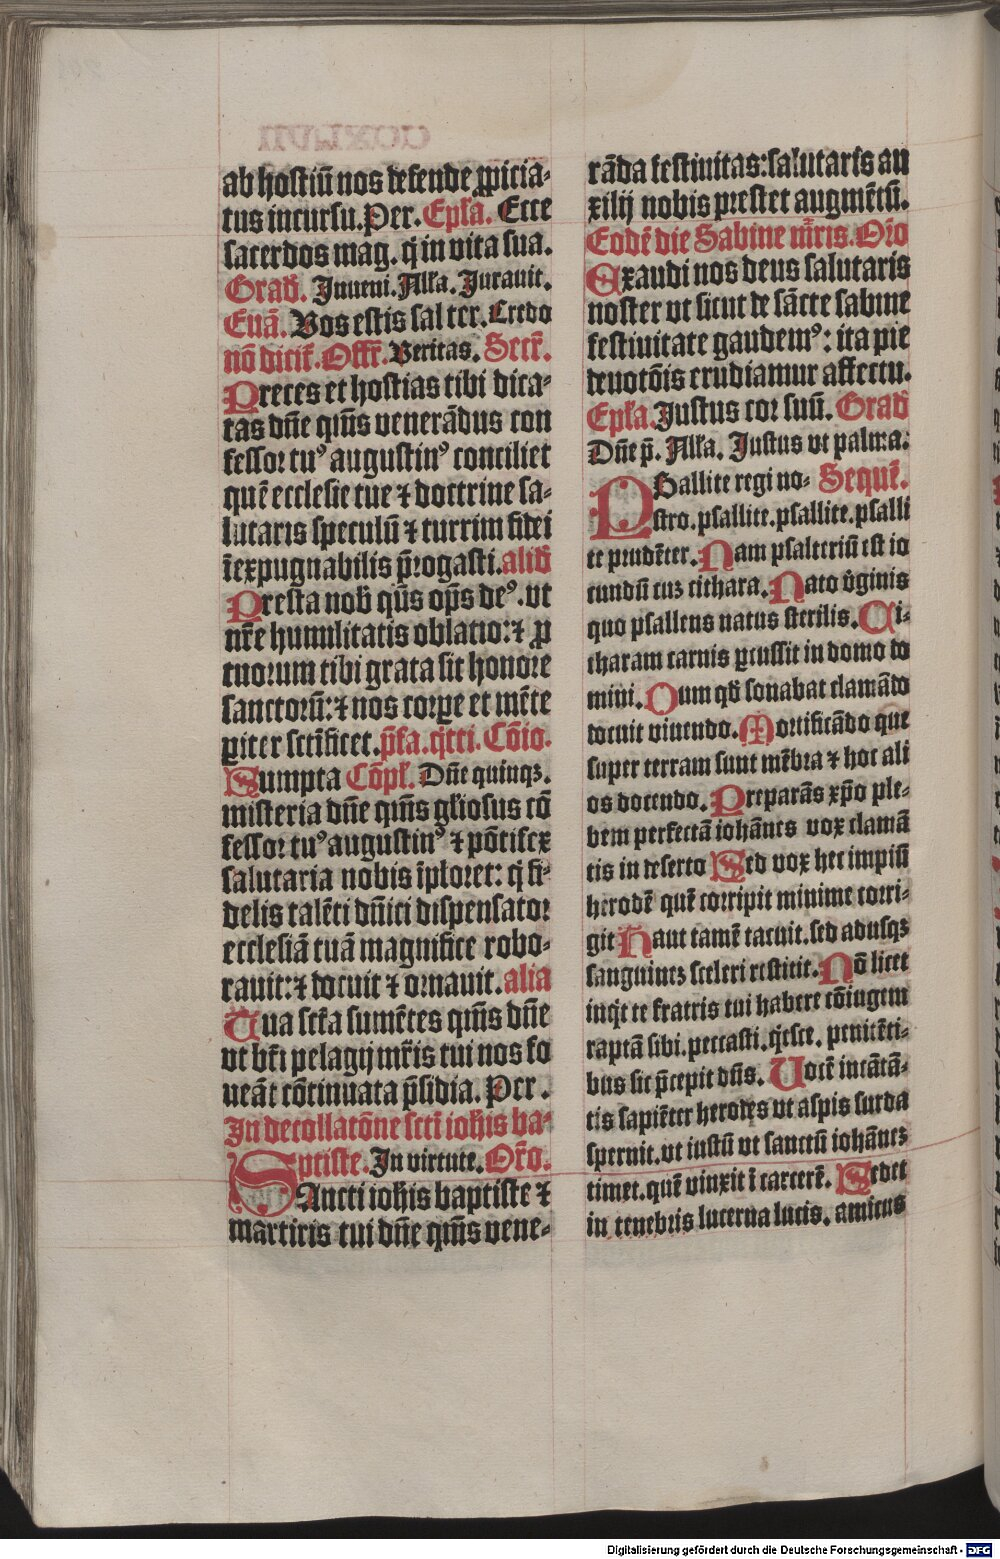 ab hostiū nos defende ꝓpicia-
tus incursu. Per. Epl̄a. Ecce
sacerdos mag. q̄ in vita sua.
Grad᷒. Inueni. All̄a. Jurauit.
Euā. Vos estis sal ter. Credo
nō dicit᷑. Off᷑. Veritas. Secr̄.
Preces et hostias tibi dica-
tas dn̄e qm̄s venerādus con
fessor tuꝰ augustinꝰ conciliet
quē ecclesie tue ⁊ doctrine sa-
lutaris speculū ⁊ turrim fidei
īexpugnabilis p̄rogasti. alib᷒
Presta nob᷒ qm̄s op̄s deꝰ. vt
nr̄e humilitatis oblatio: ⁊ ꝓ
tuorum tibi grata sit honore
sanctorū: ⁊ nos corꝑe et mēte
ꝑiter sctīficet. p̄fa. q̄tti. Cōio.
Sumpta Cōpl̄. Dn̄e quinqꝫ.
misteria dn̄e qm̄s gl̄iosus cō
fessor tuꝰ augustinꝰ ⁊ pōtifex
salutaria nobis īploret: q̄ fi-
delis talēti dn̄ici dispensator
ecclesiā tuā magnifice robo-
rauit: ⁊ docuit ⁊ ornauit. alia
Tua sctā sumētes qm̄s dn̄e
vt btī pelagij mr̄is tui nos fo
ueāt cōtinuata p̄sidia. Per.
In decollatōne sctī ioh̄is ba-
ptiste. In virtute. Or̄o.
SAncti ioh̄is baptiste ⁊
martiris tui dn̄e qm̄s vene-
rāda festiuitas: salutaris au
xilij nobis prestet augmētū.
Eodē die Sabine mr̄is. Or̄o
Exaudi nos deus salutaris
noster vt sicut de sācte sabine
festiuitate gaudemꝰ: ita pie
deuotōis erudiamur affectu.
Epl̄a. Justus cor suū. Grad᷒
Dn̄e p̄. All̄a. Justus vt palma.
PSallite regi no- Sequē.
stro. psallite. psallite. psalli
te prudēter. Nam psalteriū est io
cundū cuꝫ cithara. Nato v̄ginis
quo psallens natus sterilis. Ci-
tharam carnis ꝑcussit in domo do
mini. Cum qd᷒ sonabat clamādo
docuit viuendo. Mortificādo que
super terram sunt mēbra ⁊ hoc ali
os docendo. Preparās xp̄o ple-
bem perfectā iohānes vox clamā
tis in deserto Sed vox hec impisi
herodē quē corripit minime corri-
git Haut tamē tacuit. sed adusqꝫ
sanguineꝫ sceleri restitit. Nō licet
inq̄t te fratris tui habere cōiugem
raptā sibi. peccasti. q̄esce. penitēti-
bus sic p̄cepit dn̄s. Vocē incātā-
tis sapiēter herodes vt aspis surda
spernit. vt iustū vt sanctū iohāneꝫ
timet. quē vinxit ī carcerē. Sedet
in tenebris lucerna lucis. amicus
Digitalisierung gefördert durch die Deutsche Forschungsgemeinschaft - DFG